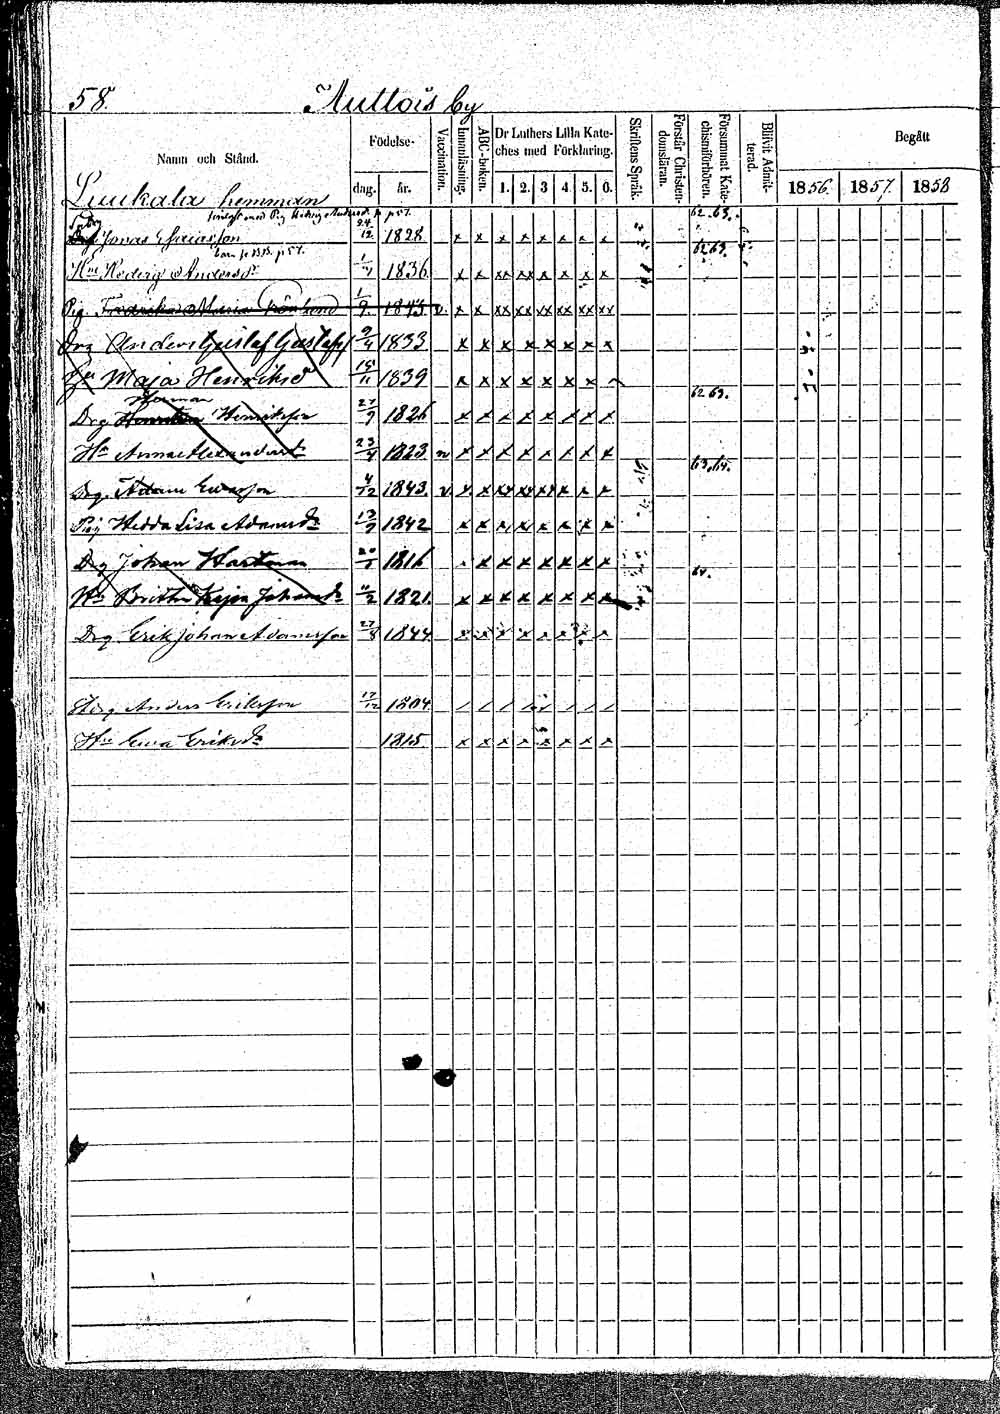 58. Auttois by
Namn och Stånd. Födelse- dag. år. Vaccination. Innanläsning. ABC-boken. Dr Luthers Lilla Kate-ches med Förklaring. 1. 2. 3 4. 5. 6. Skriftens Språk. Förstår Christen-domsläran. Försummat Kate-chismiförhören. Blifvit Admit-terad. Begått 1856. 1857. 1858
Luukala hemman
Jonas Esaiasson 24/12. 1828 x x x x x x x x 62.63.
barn se p 57.
Hu Hedvig Andersdr 1836 x x xx xx x x x x 62 63.
Pig. Fredrika Maria 1/9. 1843 v. x x xx xx xx xx xx xx
Drg Anders Gustaf Gustafss 9/4 1833 x x x x x x x x
Maja Henriksdr 15/11 1839 x x x x x x x
Herman
Drg Henriksson 27/9 1826 x x x x x x x x 62 63.
Hu Anna Alexandersdr 23/4 1823 x x x x x x x x
Drg. Adam Evasson 4/12 1843. v. x x xx xx xx x x x 63.64.
Pig Hedda Lisa Adamsdr 13/9 1842 x x x x x x x x
Drg Johan Hartman 1816 x x x x x x x
Hu Britha Kajsa Johansdr 11/2 1821. x x x x x x x x 64.
Drg Erik Johan Adamsson 27/8 1844 x x x x x x x x
Anders Eriksson 17/12 1804. / / / / / / / /
Hu Eva Eriksdr 1815 x x x x x x x x